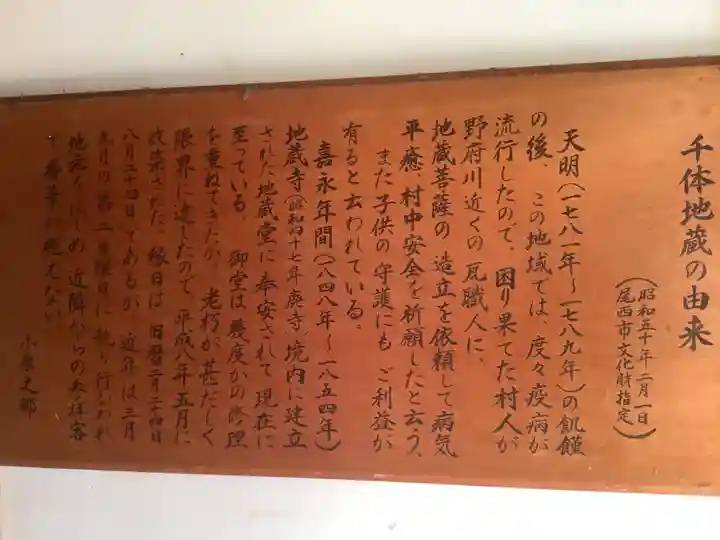 千体地蔵の由来
（昭和五十年二月一日
尾西市文化財指定）
天明（一七八一年～一七八九年）の飢饉
の後、この地域では、度々疫病が
流行したので、困り果てた村人が
野府川近くの瓦職人に、
地蔵菩薩の造立を依頼して病気
平癒、村中安全を祈願したと云う。
また子供の守護にもご利益が
有ると云われている。
嘉永年間（一八四八年～一八五四年）
地蔵寺（昭和四十七年廃寺）境内に建立
された地蔵堂に奉安されて現在に
至っている。御堂は幾度かの修理
を重ねてきたが、老朽が甚だしく
限界に達したので、平成八年五月に
改築された。縁日は旧暦二月二十四日
八月二十四日であるが、近年は三月
九月の第二日曜日に執り行なわれ
地元をはじめ近隣からの参拝客
で